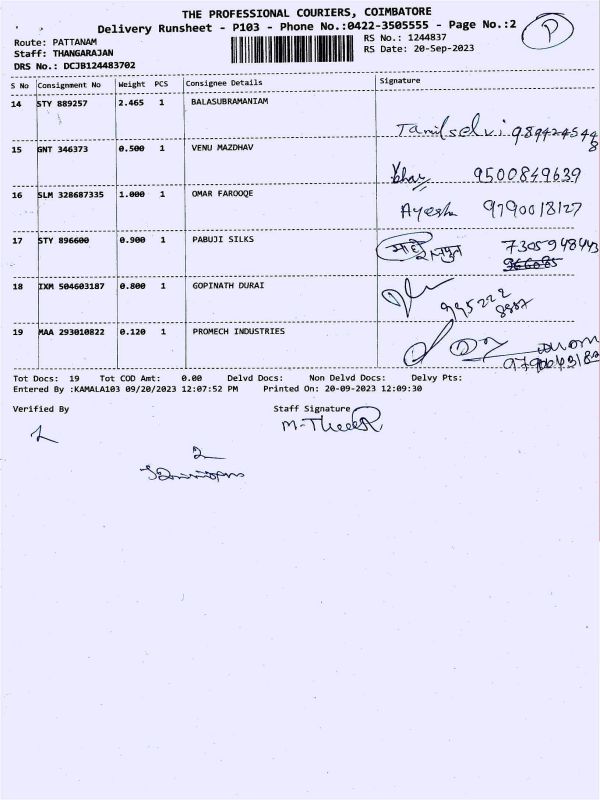 THE PROFESSIONAL COURIERS, COIMBATORE
Delivery Runsheet - P103 - Phone No.:0422-3505555 - Page No.:2
P
Route: PATTANAM
RS No.: 1244837
Staff: THANGARAJAN
RS Date: 20-Sep-2023
DRS No.: DCJB124483702
S No Consignment No Weight PCS Consignee Details Signature
14 STY 889257 2.465 1 BALASUBRAMANIAM
Tamilselvi
15 GNT 346373 0.500 1 VENU MAZDHAV
9500849639
16 SLM 328687335 1.000 1 OMAR FAROOQE
Ayesha 9790018127
17 STY 896600 0.900 1 PABUJI SILKS
18 IXM 504603187 0.800 1 GOPINATH DURAI
19 MAA 293010822 0.120 1 PROMECH INDUSTRIES
Tot Docs: 19 Tot COD Amt: 0.00 Delvd Docs: Non Delvd Docs: Delvy Pts:
Entered By :KAMALA103 09/20/2023 12:07:52 PM Printed On: 20-09-2023 12:09:30
Verified By Staff Signature